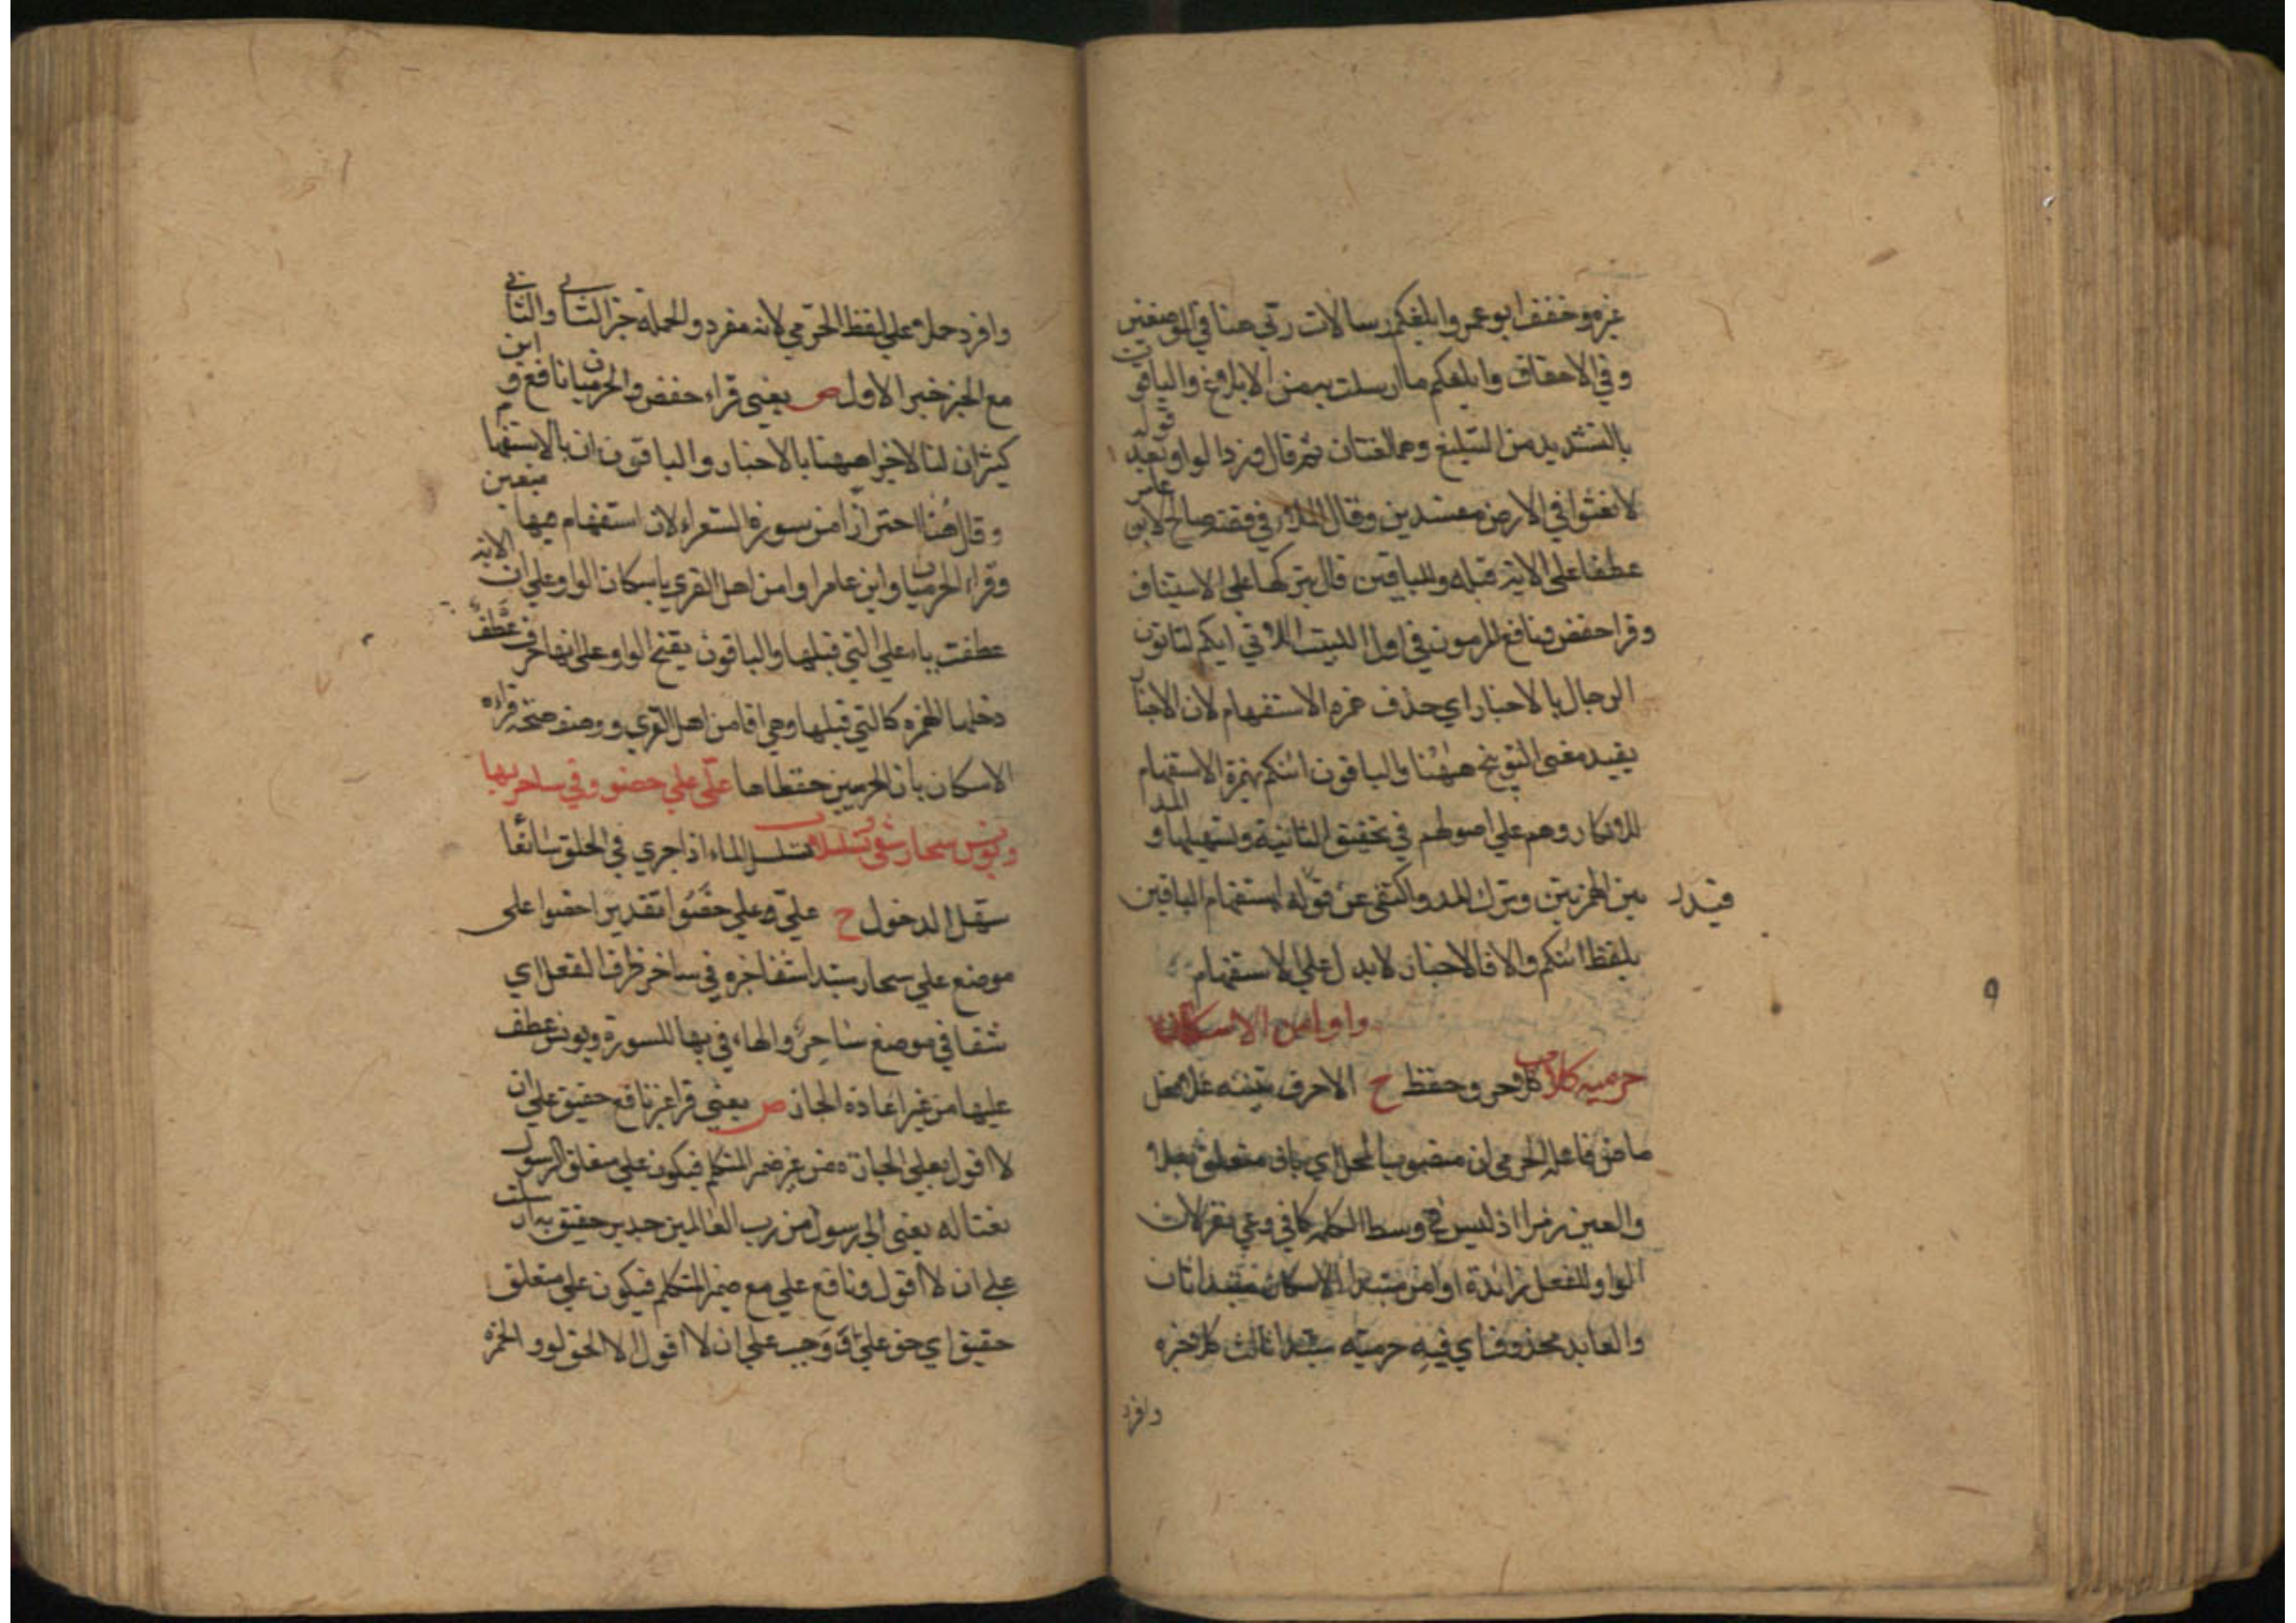 غيره وخفف ابو عمرو ابلغكم رسالات ربي هنا في الموضعين
وفي الاحقاف وابلغكم ما ارسلت به من الابلاغ والباقون
بالتشديد من التبليغ وهما لغتان ثم قال وزد الواو بعد قوله
لا تعثوا في الارض مفسدين وقال الملا في قصة صالح لابن عامر
عطفا على الاية قبله وللباقين قال بتركها على الاستيناف
وقرا حفص ونافع المرموز في اول البيت الاتي ايكم لتاتون
الرجال بالاخبار اي حذف همزه الاستفهام لان الاخبار
يفيد معنى التوبيخ ههنا والباقون ائنكم بهمزة الاستفهام
للانكار وهم علي اصولهم في تحقيق الثانية وتسهيلها والمد
بين الهمزتين وترك المد واكتفى عن قوله استفهام الباقين
قيد
بلفظ ائنكم والا فالاخبار لا يدل علي الاستفهام
واو امن الاسكان
حرميه كلا كلا وحي وحفظ ح الاحرف
ما ضي فاعله الحرمي ان منصوب المحل اي بان متعلق بعلا
والعين رمزا اذ ليس في وسط الكلمه كما في وعي نفر لان
الواو للفصل زائدة او امن مبتدا الاسكان مبتدا ثان
والعايد محذوف اي فيه حرميه مبتدا ثالث كلا خبره
وافرد
وافرد حملا علي لفظ الحرمي لانه مفرد والجملة خبر الثاني والثاني
مع الخبر خبر الاول ص يعني قراء حفص والحرميان نافع وابن
كثير ان لنا لاجرا ههنا بالاخبار والباقون ان بالاستفهام
وقال هُنا احترازا من سورة الشعراء لان استفهام فيها متعين
وقراء الحرميان وابن عامر او امن اهل القري باسكان الواو علي ان الاية
عطفت باو علي التي قبلها والباقون بفتح الواو على انها حرف عطف
دخلها الهمزه كالتي قبلها وهي افامن اهل القري ووصف صحة قراءه
الاسكان بان الحرميين حفظاها عليّ علي خصوا وفي ساحر بها
ويونس سحار شفى وتسلسلا تسلسل الماء اذا جري في الحلق سائغا
سهل الدخول ح عليّ وعلي خصوا تقديره خصوا على
موضع علي سحار مبتدا شفا خبره في ساحر ظرف الفعل اي
شفا في موضع سَاحر والهاء في بها للسورة ويونس عطف
عليها من غير اعادة الجار ص يعني قرا غير نافع حقيق علي ان
لا اقول بعلي الجارة من غير ضمير المتكلم فيكون علي متعلق الرسول
نعتا له يعني اني رسول من رب العالمين جدير حقيق به ارسلت
علي ان لا اقول ونافع علي مع ضمير المتكلم فيكون علي متعلق
حقيق اي حق علي ووجب علي ان لا اقول الا الحق وقرا حمزه